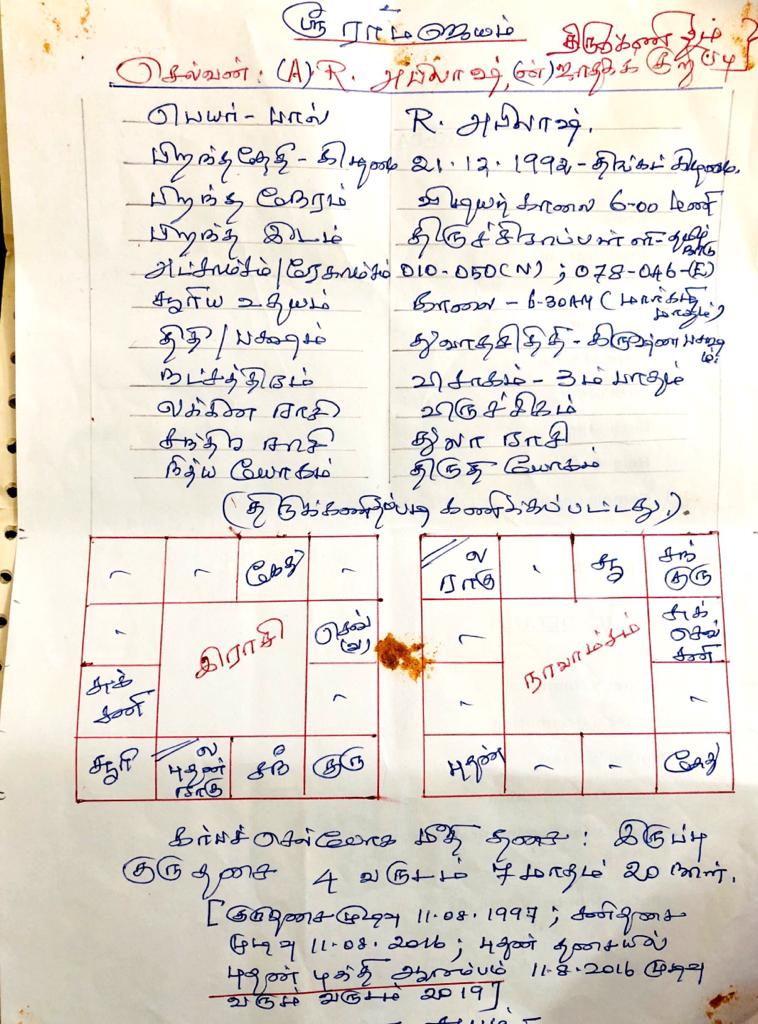 ஸ்ரீ ராமஜெயம்
திருக்கணிதம்
செல்வன்: (A). R. அபிலாஷ், (ன்) ஜாதகக் குறிப்பு
பெயர் - பால் R. அபிலாஷ்.
பிறந்ததேதி - கிழமை 21.12.1992 - திங்கட்கிழமை.
பிறந்த நேரம் விடியற்காலை 6-00 மணி
பிறந்த இடம் திருச்சிராப்பள்ளி - தமிழ்நாடு
அட்சாம்சம்/ரேகாம்சம் 010-050(N) ; 078-046-(E)
சூரிய உதயம் காலை - 6-30AM (மார்கழி மாதம்)
திதி/பக்ஷம் துவாதசிதிதி - கிருஷ்ணபக்ஷம்:
நட்சத்திரம் விசாகம் - 3ம் பாதம்
லக்கின ராசி விருச்சிகம்
சந்திர ராசி துலா ராசி
நித்ய யோகம் திருதி யோகம்
(திருக்கணிதப்படி கணிக்கப்பட்டது.).
- - கேது -
- இராசி செவ் (வ)
சுக் சனி -
சூரி ல புதன் ராகு சந் குரு
ல ராகு - சூ சந் குரு
- நாவாம்சம் சுக் செவ் சனி
- -
புதன் - - கேது
கர்ப்பச் செல்போக மீதி தசை : இருப்பு
குரு தசை 4 வருடம் 7 மாதம் 20 நாள்.
[குருதசை முடிவு 11.08.1997 ; சனிதசை
முடிவு 11.08.2016 ; புதன் தசையில்
புதன் புக்தி ஆரம்பம் 11-8-2016 முடிவு
வரும் வருடம் 2019]